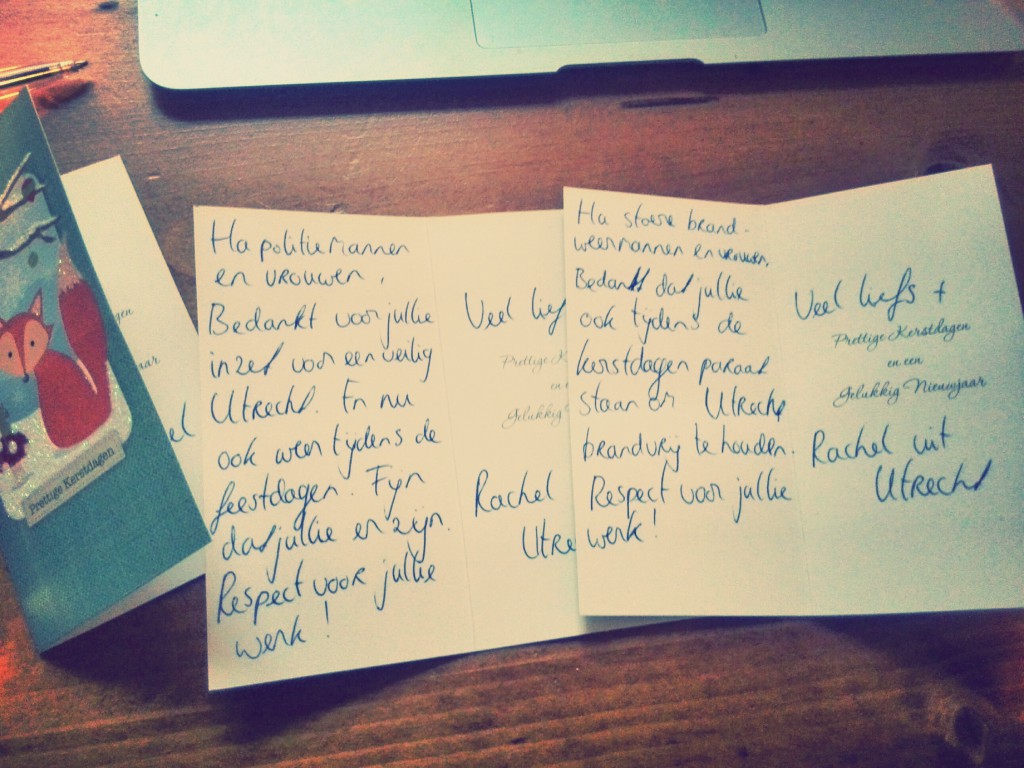 Prettige Kerstdagen
el
Ha politiemannen
en vrouwen,
Bedankt voor jullie
inzet voor een veilig
Utrecht. En nu
ook weer tijdens de
feestdagen. Fijn
dat jullie er zijn.
Respect voor jullie
werk!
Veel lief
Prettige K
en e
Gelukkig
Rachel
Utre
Ha stoere brand-
weermannen en vrouwen,
Bedankt dat jullie
ook tijdens de
kerstdagen paraat
staan om Utrecht
brandvrij te houden.
Respect voor jullie
werk!
Veel liefs +
Prettige Kerstdagen
en een
Gelukkig Nieuwjaar
Rachel uit
Utrecht